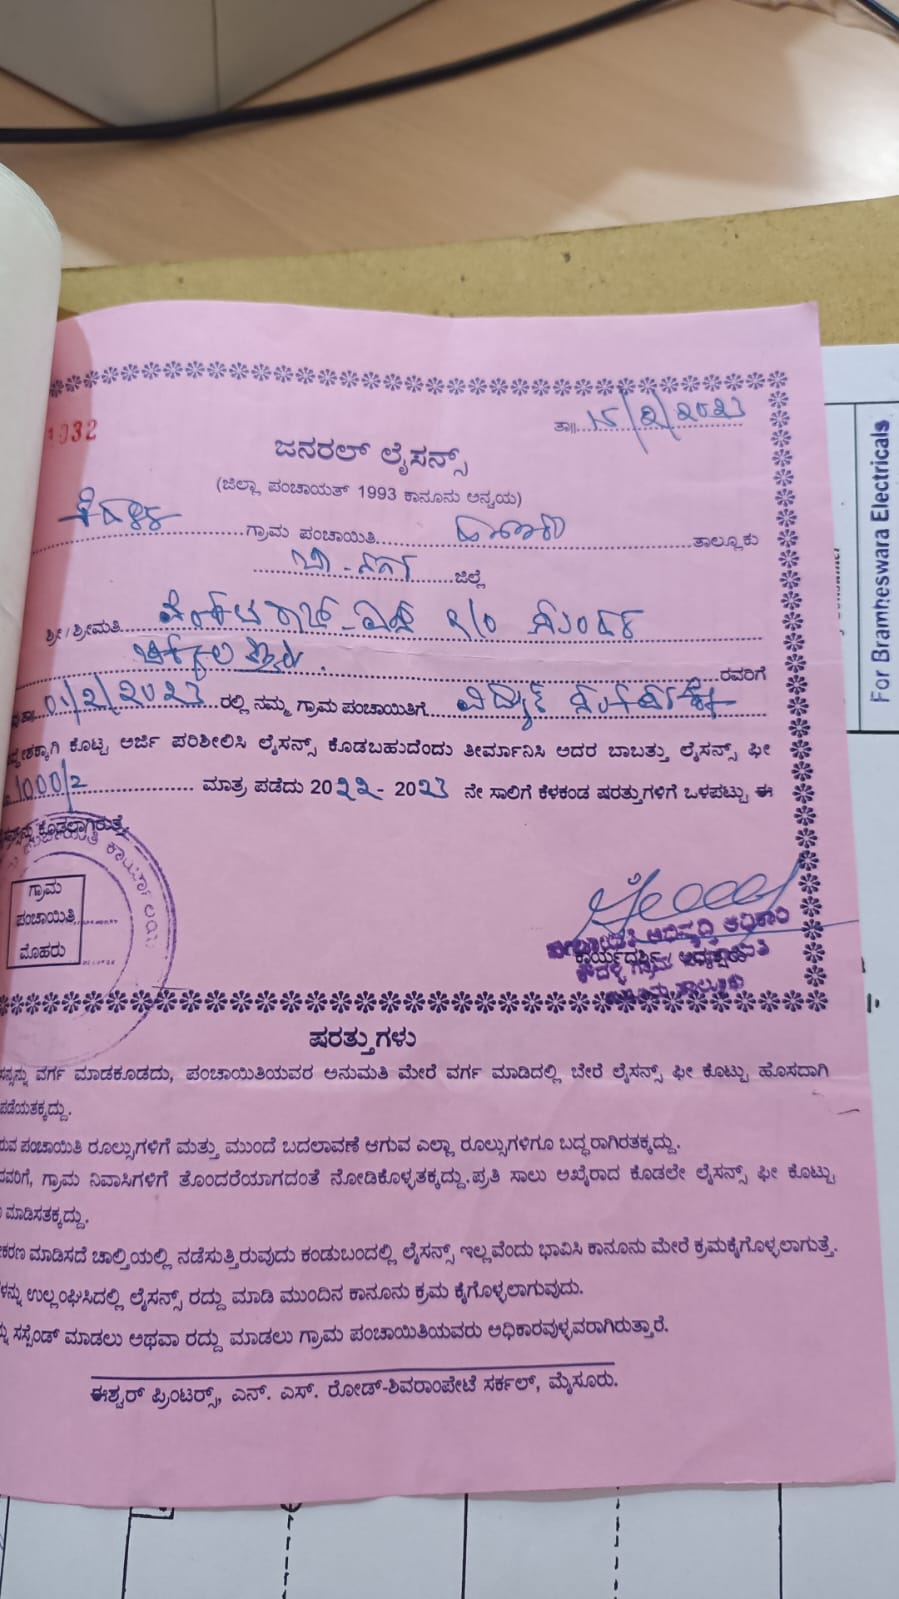 932
ತಾ॥ 15/2/2023
ಜನರಲ್ ಲೈಸನ್ಸ್
(ಜಿಲ್ಲಾ ಪಂಚಾಯತ್ 1993 ಕಾನೂನು ಅನ್ವಯ)
ಗ್ರಾಮ ಪಂಚಾಯಿತಿ ತಾಲ್ಲೂಕು
ಜಿಲ್ಲೆ
ಶ್ರೀ/ಶ್ರೀಮತಿ ವೆಂಕಟರಾಜ್ S/O
ರವರಿಗೆ
01/2/2023 ರಲ್ಲಿ ನಮ್ಮ ಗ್ರಾಮ ಪಂಚಾಯಿತಿಗೆ ವಿದ್ಯುತ್
ಕೊಟ್ಟ ಅರ್ಜಿ ಪರಿಶೀಲಿಸಿ ಲೈಸನ್ಸ್ ಕೊಡಬಹುದೆಂದು ತೀರ್ಮಾನಿಸಿ ಅದರ ಬಾಬತ್ತು ಲೈಸನ್ಸ್ ಫೀ
1000/= ಮಾತ್ರ ಪಡೆದು 2022 - 2023 ನೇ ಸಾಲಿಗೆ ಕೆಳಕಂಡ ಷರತ್ತುಗಳಿಗೆ ಒಳಪಟ್ಟು ಈ
ಕೊಡಲಾಗಿರುತ್ತೆ.
ಗ್ರಾಮ
ಪಂಚಾಯಿತಿ
ಮೊಹರು
ಕಾರ್ಯಾಲಯ
ಅಭಿವೃದ್ಧಿ ಅಧಿಕಾರಿ
ಕಾರ್ಯದರ್ಶಿ / ಅಧ್ಯಕ್ಷರು
ಷರತ್ತುಗಳು
ವರ್ಗ ಮಾಡಕೂಡದು, ಪಂಚಾಯಿತಿಯವರ ಅನುಮತಿ ಮೇರೆ ವರ್ಗ ಮಾಡಿದಲ್ಲಿ ಬೇರೆ ಲೈಸನ್ಸ್ ಫೀ ಕೊಟ್ಟು ಹೊಸದಾಗಿ
ಪಡೆಯತಕ್ಕದ್ದು.
ಪಂಚಾಯಿತಿ ರೂಲ್ಸುಗಳಿಗೆ ಮತ್ತು ಮುಂದೆ ಬದಲಾವಣೆ ಆಗುವ ಎಲ್ಲಾ ರೂಲ್ಸುಗಳಿಗೂ ಬದ್ಧರಾಗಿರತಕ್ಕದ್ದು.
ಗ್ರಾಮ ನಿವಾಸಿಗಳಿಗೆ ತೊಂದರೆಯಾಗದಂತೆ ನೋಡಿಕೊಳ್ಳತಕ್ಕದ್ದು. ಪ್ರತಿ ಸಾಲು ಅಖೈರಾದ ಕೂಡಲೇ ಲೈಸನ್ಸ್ ಫೀ ಕೊಟ್ಟು
ಮಾಡಿಸತಕ್ಕದ್ದು.
ಮಾಡಿಸದೆ ಚಾಲ್ತಿಯಲ್ಲಿ ನಡೆಸುತ್ತಿರುವುದು ಕಂಡುಬಂದಲ್ಲಿ ಲೈಸನ್ಸ್ ಇಲ್ಲವೆಂದು ಭಾವಿಸಿ ಕಾನೂನು ಮೇರೆ ಕ್ರಮಕೈಗೊಳ್ಳಲಾಗುತ್ತೆ.
ಉಲ್ಲಂಘಿಸಿದಲ್ಲಿ ಲೈಸನ್ಸ್ ರದ್ದು ಮಾಡಿ ಮುಂದಿನ ಕಾನೂನು ಕ್ರಮ ಕೈಗೊಳ್ಳಲಾಗುವುದು.
ಸಸ್ಪೆಂಡ್ ಮಾಡಲು ಅಥವಾ ರದ್ದು ಮಾಡಲು ಗ್ರಾಮ ಪಂಚಾಯಿತಿಯವರು ಅಧಿಕಾರವುಳ್ಳವರಾಗಿರುತ್ತಾರೆ.
ಈಶ್ವರ್ ಪ್ರಿಂಟರ್ಸ್, ಎನ್. ಎಸ್. ರೋಡ್-ಶಿವರಾಂಪೇಟೆ ಸರ್ಕಲ್, ಮೈಸೂರು.
For Bramheswara Electricals